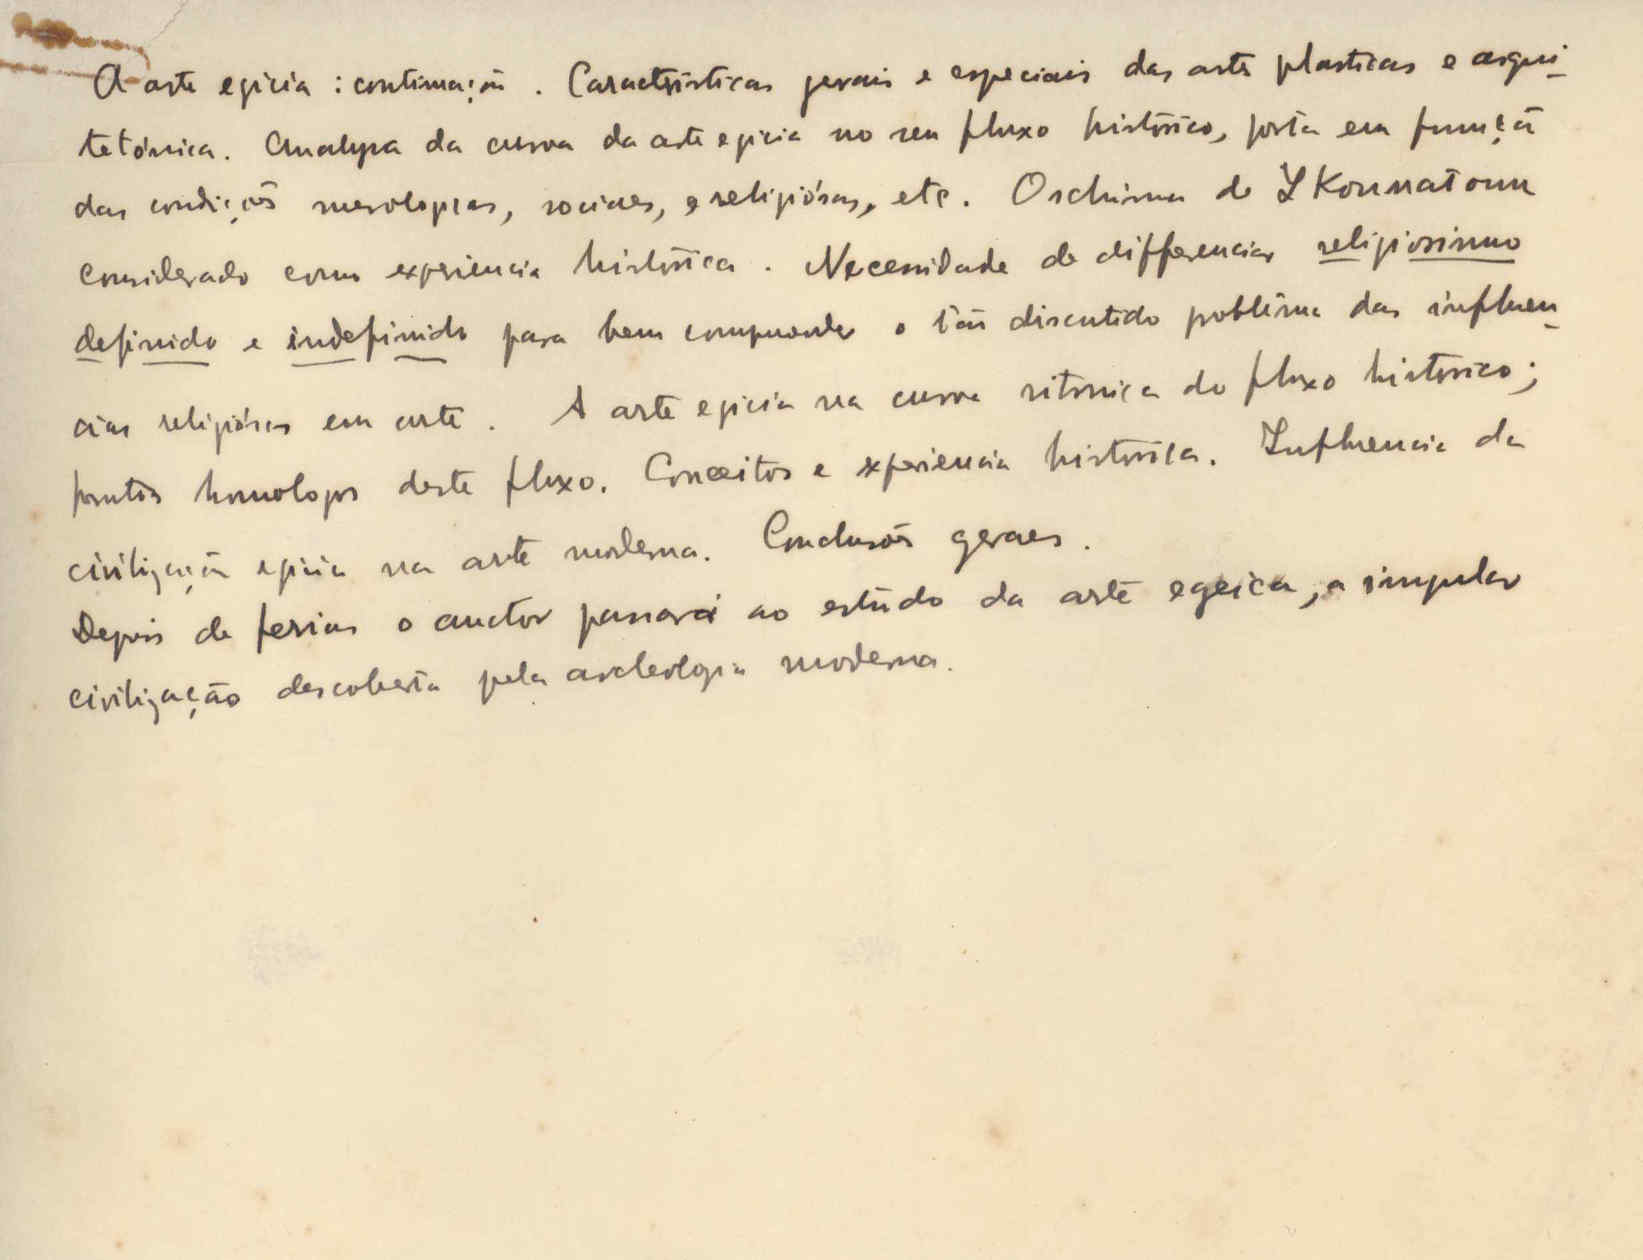 A arte egicia : continuação. Caracteristicas gerais e especiais das artes plasticas e arqui-
tetónica. Analyse da curva da arte egicia no seu fluxo histórico, posta em função
das condições mesologicas, sociaes, e religiósas, etc. O schisma de IKounatonn
considerado como experiencia histórica. Necessidade de differenciar religiosismo
definido e indefinido para bem comprender o tão discutido problema das influen-
cias religiósas em arte. A arte egicia na curva ritmica do fluxo histórico;
pontos homologos deste fluxo. Conceitos e experiencia histórica. Influencia da
civilização egicia na arte moderna. Conclusões geraes.
Depois de ferias o auctor passará ao estudo da arte egeica, a singular
civilização descoberta pela archeologia moderna.